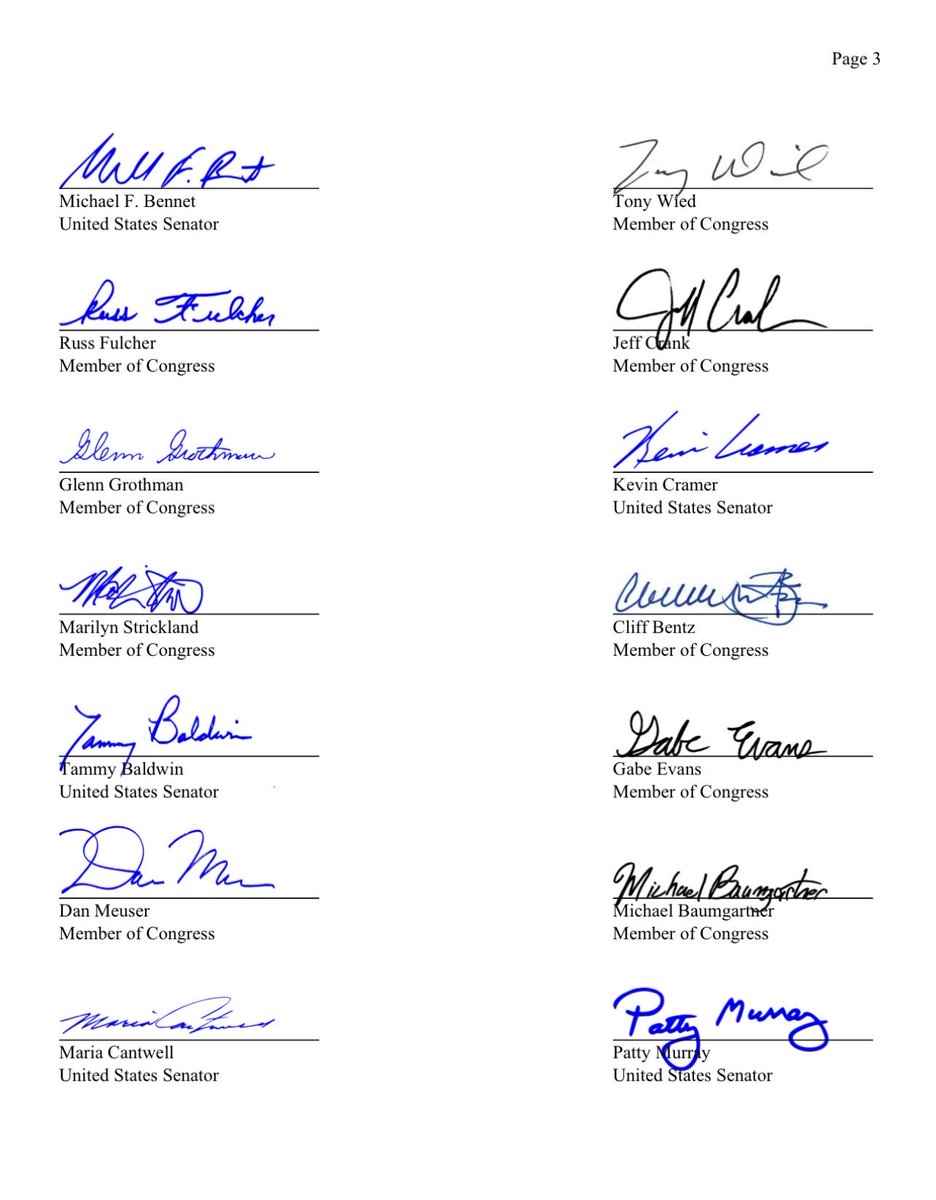 Page 3
Michael F. Bennet
United States Senator
Tony Wied
Member of Congress
Russ Fulcher
Russ Fulcher
Member of Congress
Jeff Crank
Member of Congress
Glenn Grothman
Glenn Grothman
Member of Congress
Kevin Cramer
United States Senator
Marilyn Strickland
Member of Congress
Cliff Bentz
Member of Congress
Tammy Baldwin
Tammy Baldwin
United States Senator
Gabe Evans
Gabe Evans
Member of Congress
Dan Meuser
Member of Congress
Michael Baumgartner
Michael Baumgartner
Member of Congress
Maria Cantwell
United States Senator
Patty Murray
Patty Murray
United States Senator